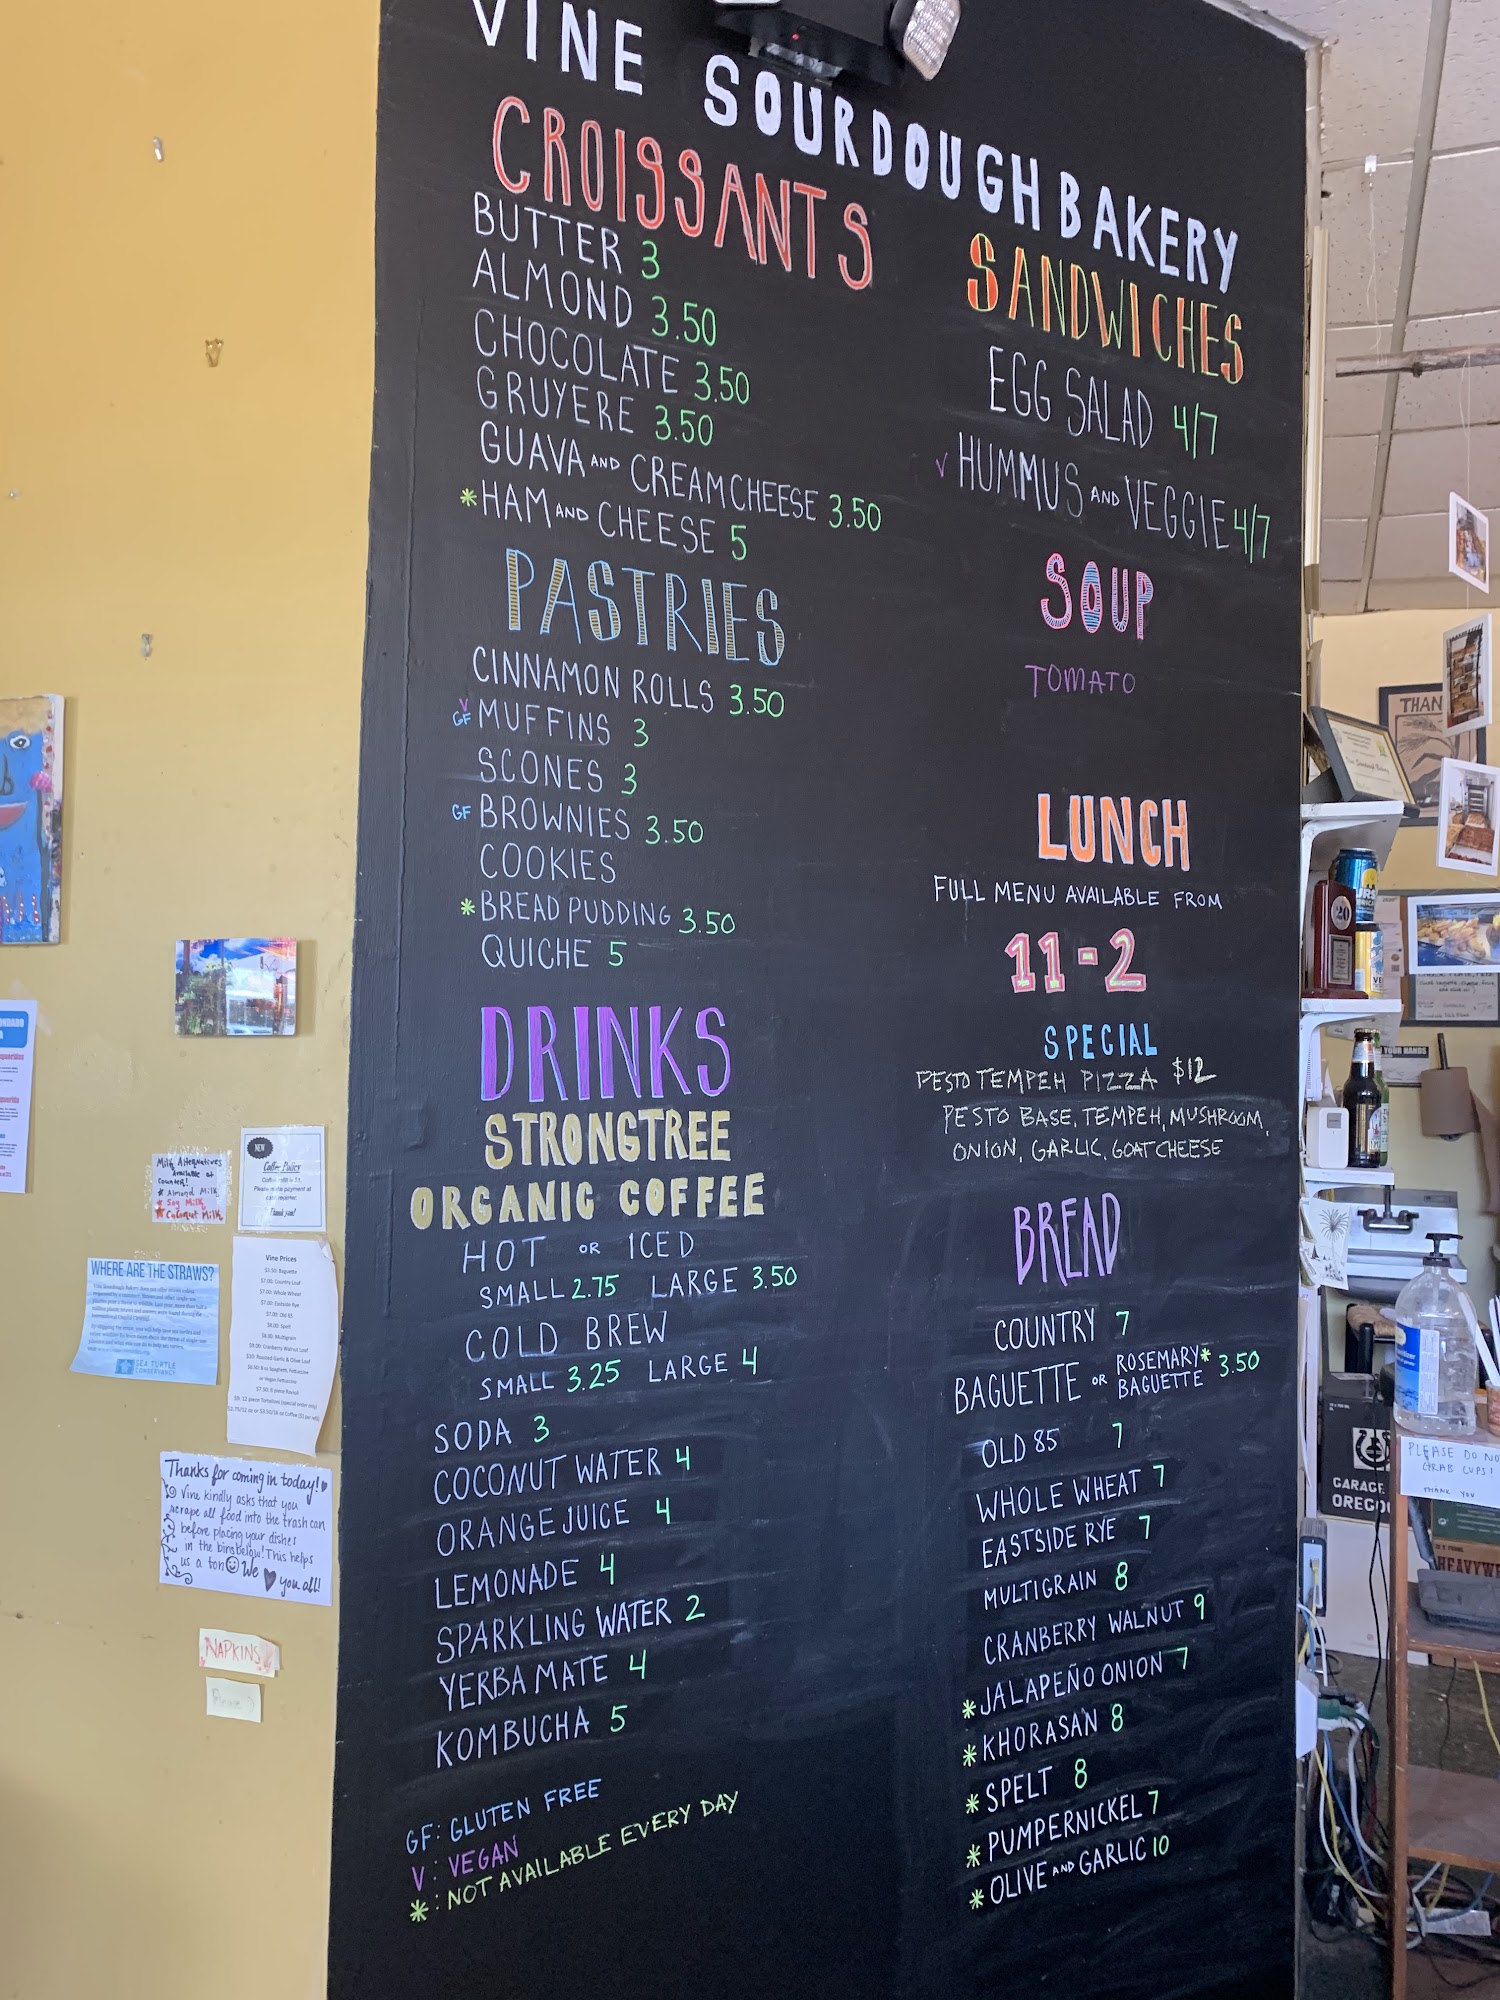 VINE SOURDOUGH BAKERY
CROISSANTS
BUTTER 3
ALMOND 3.50
CHOCOLATE 3.50
GRUYERE 3.50
GUAVA AND CREAM CHEESE 3.50
* HAM AND CHEESE 5
PASTRIES
CINNAMON ROLLS 3.50
V
GF MUFFINS 3
SCONES 3
GF BROWNIES 3.50
COOKIES
* BREAD PUDDING 3.50
QUICHE 5
DRINKS
STRONGTREE
ORGANIC COFFEE
HOT OR ICED
SMALL 2.75 LARGE 3.50
COLD BREW
SMALL 3.25 LARGE 4
SODA 3
COCONUT WATER 4
ORANGE JUICE 4
LEMONADE 4
SPARKLING WATER 2
YERBA MATE 4
KOMBUCHA 5
GF: GLUTEN FREE
V: VEGAN
*: NOT AVAILABLE EVERY DAY
SANDWICHES
EGG SALAD 4/7
V HUMMUS AND VEGGIE 4/7
SOUP
TOMATO
LUNCH
FULL MENU AVAILABLE FROM
11-2
SPECIAL
PESTO TEMPEH PIZZA $12
PESTO BASE, TEMPEH, MUSHROOM,
ONION, GARLIC, GOAT CHEESE
BREAD
COUNTRY 7
BAGUETTE OR ROSEMARY* BAGUETTE 3.50
OLD 85 7
WHOLE WHEAT 7
EASTSIDE RYE 7
MULTIGRAIN 8
CRANBERRY WALNUT 9
* JALAPEÑO ONION 7
* KHORASAN 8
* SPELT 8
* PUMPERNICKEL 7
* OLIVE AND GARLIC 10
Milk Alternatives
Available at
Counter!
* Almond Milk
* Soy Milk
* Coconut Milk
NEW
Coffee Policy
Thank you!
WHERE ARE THE STRAWS?
SEA TURTLE
CONSERVANCY
Vine Prices
$3.50: Baguette
$7.00: Country Loaf
$7.00: Whole Wheat
$7.00: Eastside Rye
$7.00: Old 85
$8.00: Spelt
$8.00: Multigrain
$9.00: Cranberry Walnut Loaf
$10: Roasted Garlic & Olive Loaf
Thanks for coming in today!
Vine kindly asks that you
scrape all food into the trash can
before placing your dishes
in the bins below! This helps
us a ton We
you all!
NAPKINS
THAN
20
YOUR HANDS
GARAGE
OREGO
PLEASE DO NO
GRAB CUPS!
THANK YOU
HEAVYWE